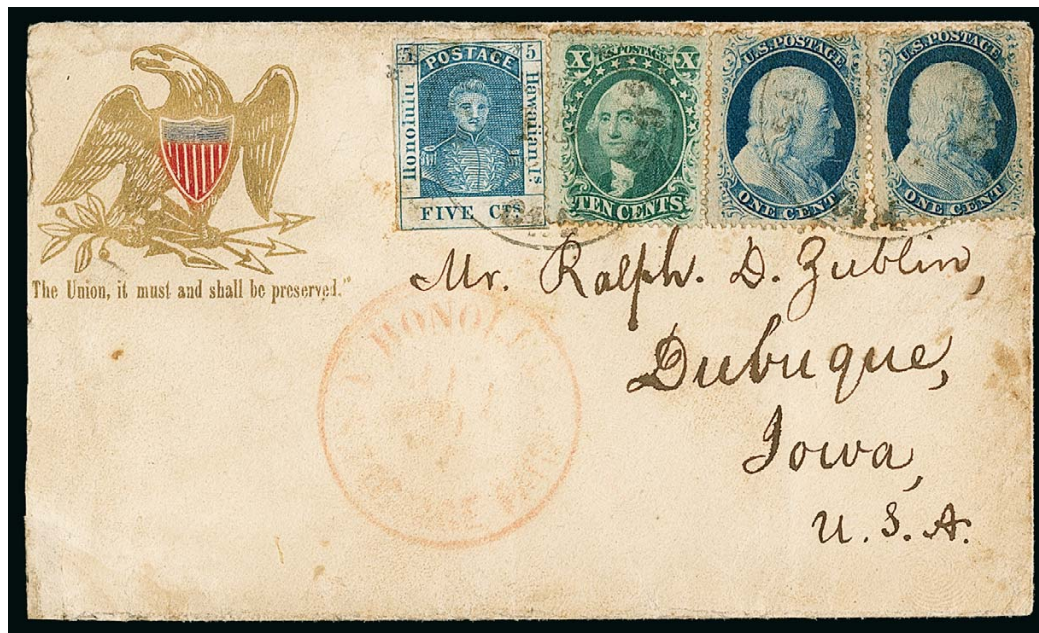 5 POSTAGE 5
Honolulu
Hawaiian Is.
FIVE Cts.
X U.S. POSTAGE X
TEN CENTS
U.S. POSTAGE
ONE CENT
U.S. POSTAGE
ONE CENT
The Union, it must and shall be preserved."
Mr. Ralph. D. Zublin,
Dubuque,
Iowa,
U.S.A.
HONOLULU